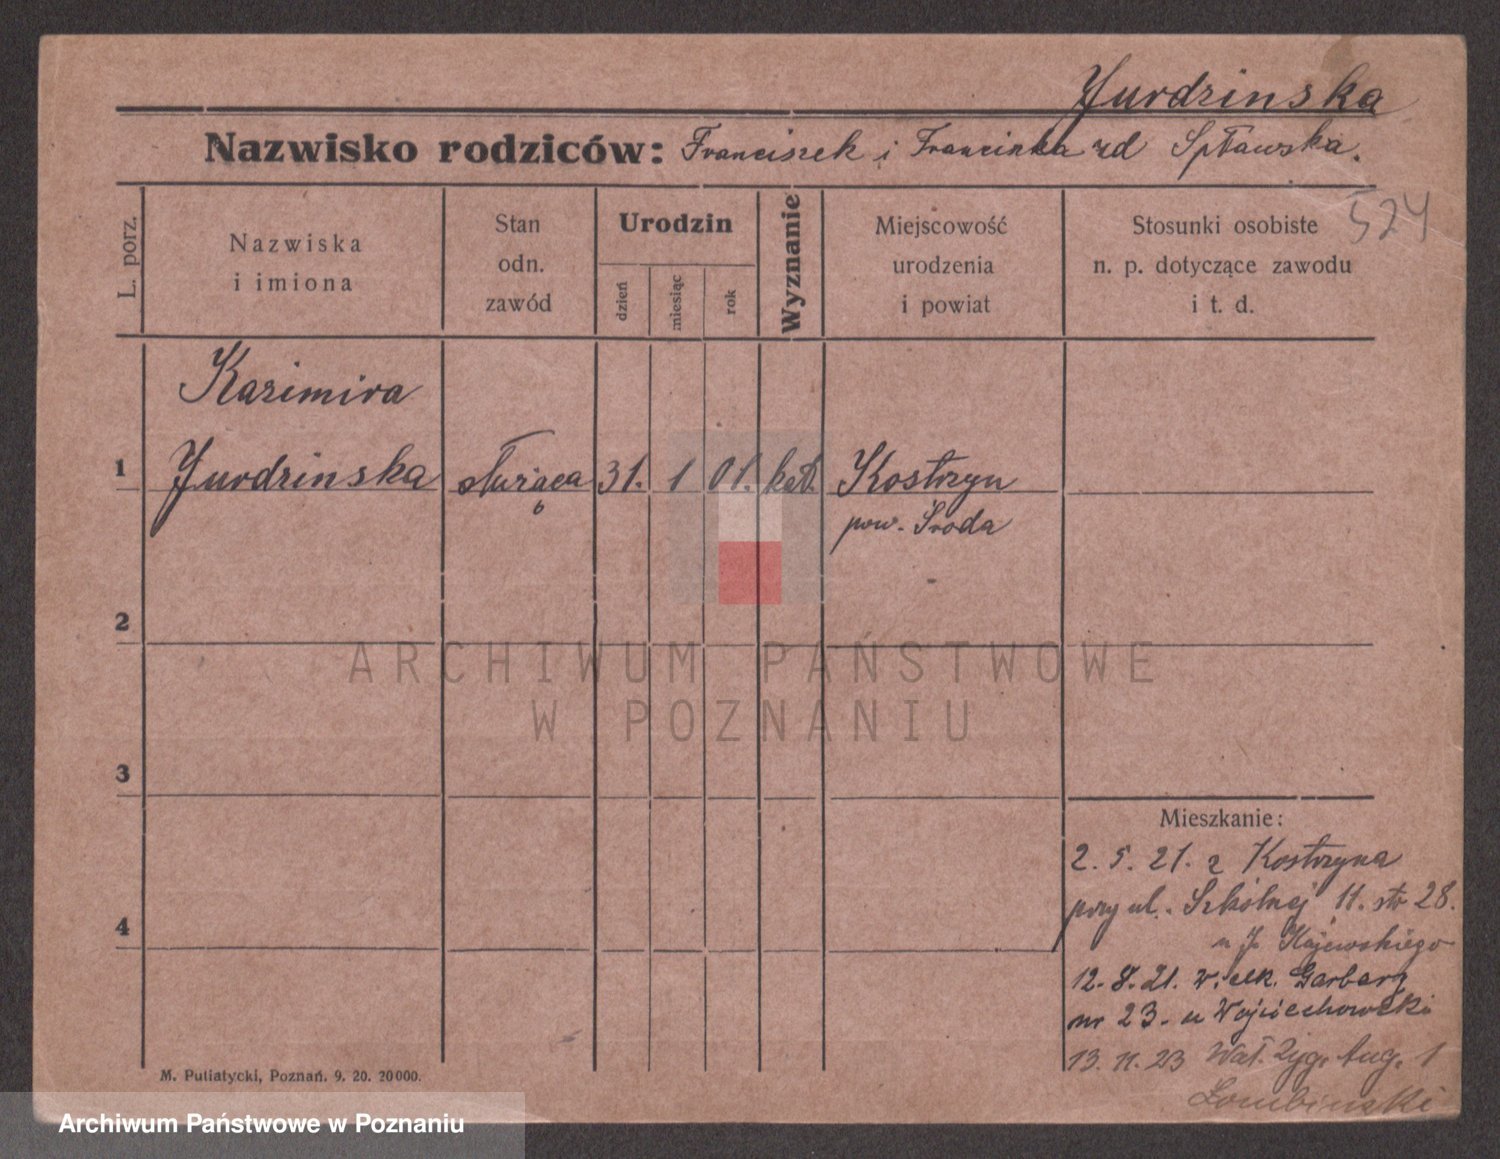 Jurdzinska
Nazwisko rodziców: Franciszek i Francizka zd Spławska.
524
L. porz.
Nazwiska
i imiona
Stan
odn.
zawód
Urodzin
dzień
miesiąc
rok
Wyznanie
Miejscowość
urodzenia
i powiat
Stosunki osobiste
n. p. dotyczące zawodu
i t. d.
Kazimira
1 Jurdzinska służąca 31. 1 01. kat. Kostrzyn
pow. Środa
2
3
4
Mieszkanie:
2. 5. 21. z Kostrzyna
przy ul. Szkólnej 11. str 28.
u J. Kajewskiego
12. 8. 21. Wielk. Garbary
nr 23. u Wojciechowski
13. 11. 23 Wał. Zyg. Aug. 1
M. Putiatycki, Poznań. 9. 20. 20000.
ARCHIWUM PAŃSTWOWE
W POZNANIU
Archiwum Państwowe w Poznaniu